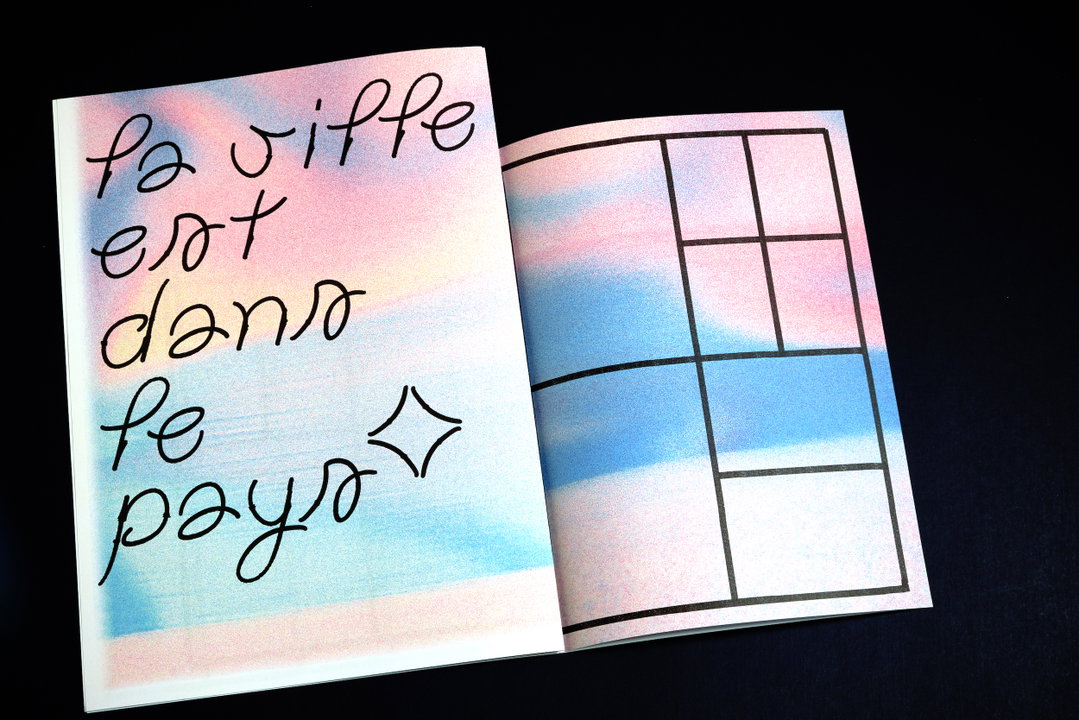 la ville
est
dans
le
pays